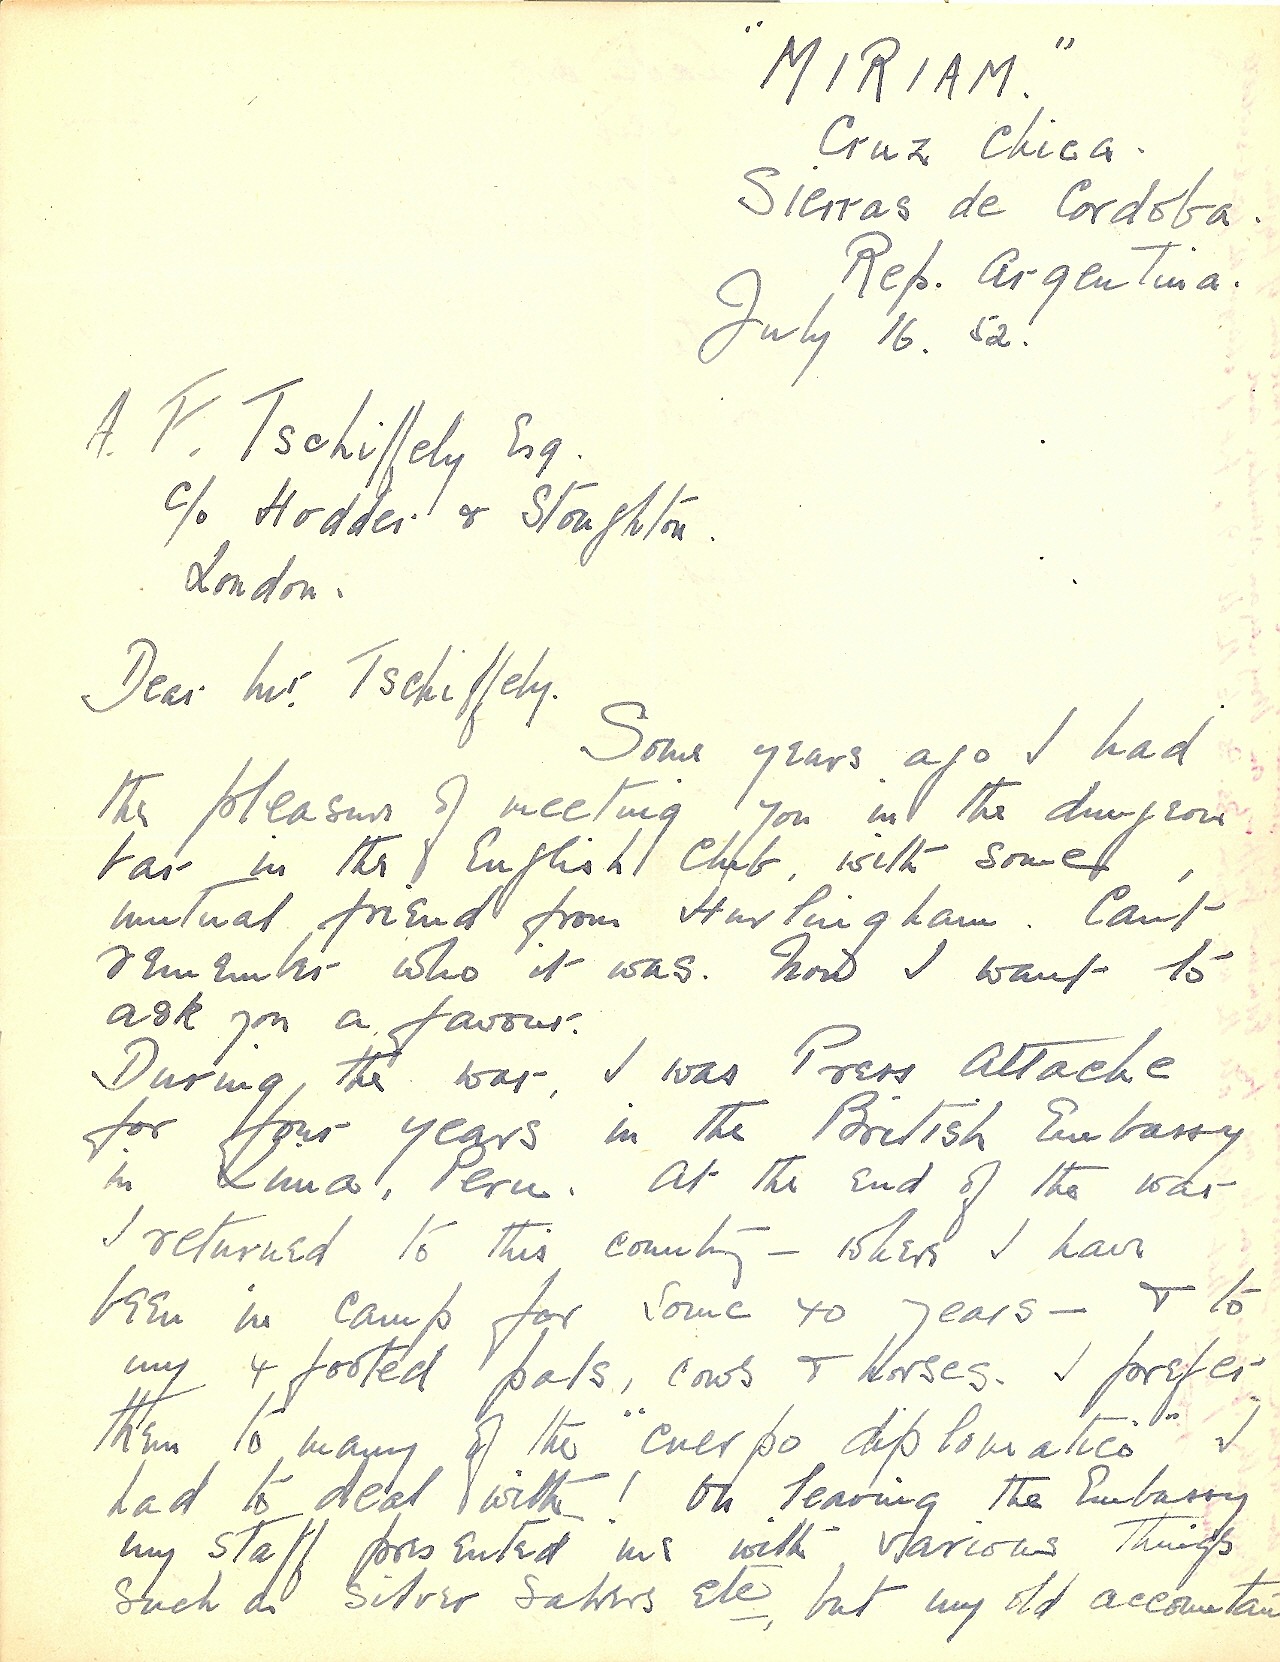 "MIRIAM."
Cruz Chica.
Sierras de Cordoba.
Rep. Argentina.
July 16. 52.
A. F. Tschiffely Esq.
c/o Hodder & Stoughton.
London.
Dear Mr. Tschiffely.
Some years ago I had
the pleasure of meeting you in the dungeon
bar in the English Club, with some
mutual friend from Hurlingham. Can't
remember who it was. Now I want to
ask you a favour.
During the war, I was Press Attache
for four years in the British Embassy
in Lima, Peru. At the end of the war
I returned to this country – where I have
been in camp for some 40 years – & to
my 4 footed pals, cows & horses. I prefer
them to many of the "cuerpo diplomatico" I
had to deal with! On leaving the Embassy
my staff presented me with various things
such as silver salvers etc, but my old accountant